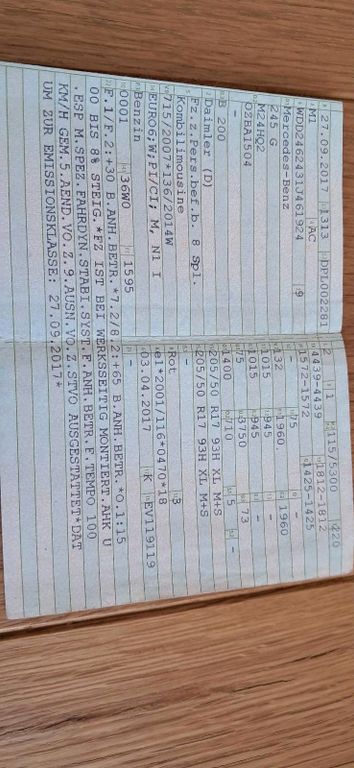 27.09.2017 1313 DPL002281
M1 AC
WDD2462431J461924 9
Mercedes-Benz
245 G
M24HQ2
OZBA1504
B 200
Daimler (D)
Fz.z.Pers.bef.b. 8 Spl.
Kombilimousine
-
715/2007*136/2014W
EURO6;W;PI/CI; M, N1 I
Benzin
0001 36W0 1595
2 1 115/5300 220
4439-4439 1812-1812
1572-1572 1425-1425
- 75 - 1960
132 1960 - -
1015 945 - -
1015 945 - -
75 3750 73
1400 710 5 -
205/50 R17 93H XL M+S
205/50 R17 93H XL M+S
-
Rot 3
e1*2001/116*0470*18
03.04.2017 K EV119119
F.1/F.2:+30 B.ANH.BETR.*7.2/8.2:+65 B.ANH.BETR.*O.1:15
00 BIS 8% STEIG.*FZ IST BEI WERKSSEITIG MONTIERT.AHK U
.ESP M.SPEZ.FAHRDYN.STABI.SYST.F.ANH.BETR.F.TEMPO 100
KM/H GEM.5.AEND.VO.Z.9.AUSN.VO.Z.STVO AUSGESTATTET*DAT
UM ZUR EMISSIONSKLASSE: 27.09.2017*